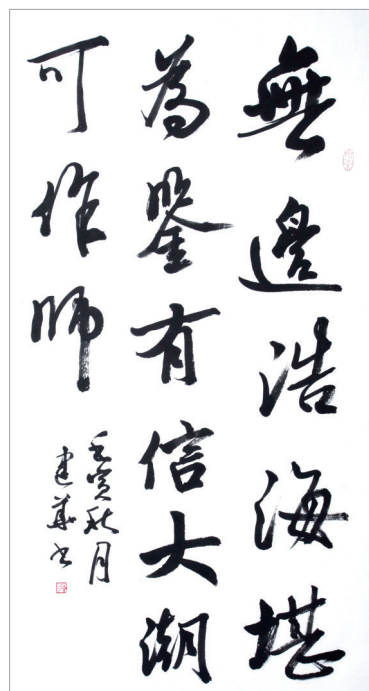 無邊浩海堪
為鑒有信大湖
可作師
壬寅秋月
建華書